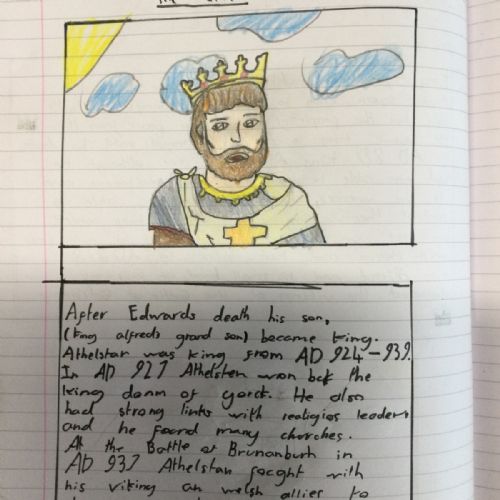 After Edwards death his son,
(king alfreds grand son) became king.
Athelstan was king from AD 924-939.
In AD 927 Athelsten won bck the
king dom of yorck. He also
had strong links with realigios leaders
and he foord many churches.
At the Battle of Brunanburh in
AD 937 Athelstan foeght with
his viking an welsh allies to